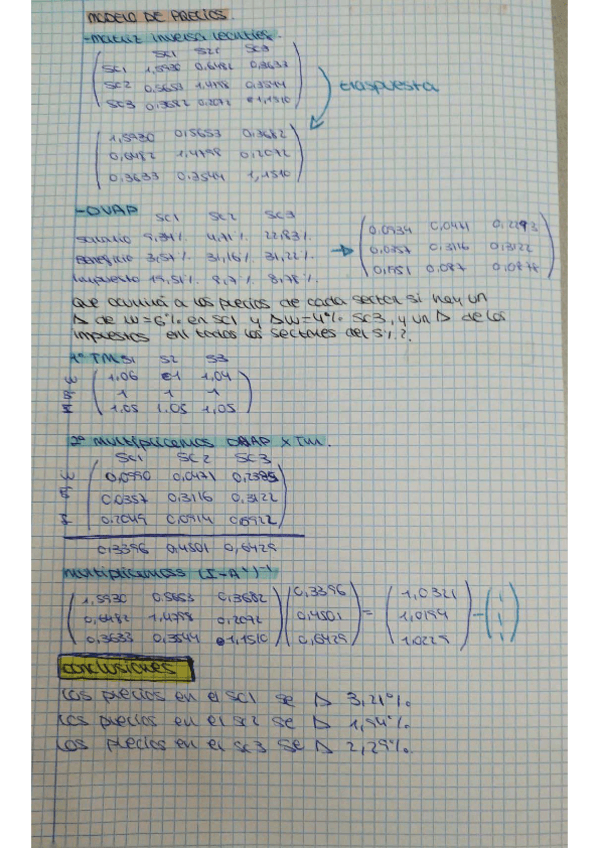 MODELO DE PRECIOS
-matriz inversa leontief.
SC1 SC2 SC3
SC1 1,5930 0,6482 0,3633
SC2 0,5653 1,4798 0,3544
SC3 0,3682 0,2072 1,1510
traspuesta
1,5930 0,5653 0,3682
0,6482 1,4798 0,2072
0,3633 0,3544 1,1510
-OVAP
SC1 SC2 SC3
salario 9,34% 4,71% 22,83%
Beneficio 3,57% 31,16% 31,22%
Impuesto 19,51% 8,7% 8,78%
0,0934 0,0471
0,0357 0,3116 0,3122
0,1951 0,087 0,0878
que ocurrirá a los precios de cada sector si hay un
Δ de W=6% en SC1 y ΔW=4% SC3, y un Δ de los
impuestos en todos los sectores del 5%?
1º TM S1 S2 S3
W 1,06 1 1,04
B 1 1 1
I 1,05 1,05 1,05
2º multiplicamos OVAP x TM.
SC1 SC2 SC3
W 0,0990 0,0471
B 0,0357 0,3116 0,3122
I 0,2049 0,0914 0,0922
0,3396 0,4501 0,6429
multiplicamos (I-A')⁻¹
1,5930 0,5653 0,3682 0,3396 = 1,0321 - 1
0,6482 1,4798 0,2072 0,4501 1,0194 1
0,3633 0,3544 1,1510 0,6429 1,0229 1
conclusiones
Los precios en el SC1 se Δ 3,21%.
Los precios en el SC2 se Δ 1,94%.
Los precios en el SC3 se Δ 2,29%.